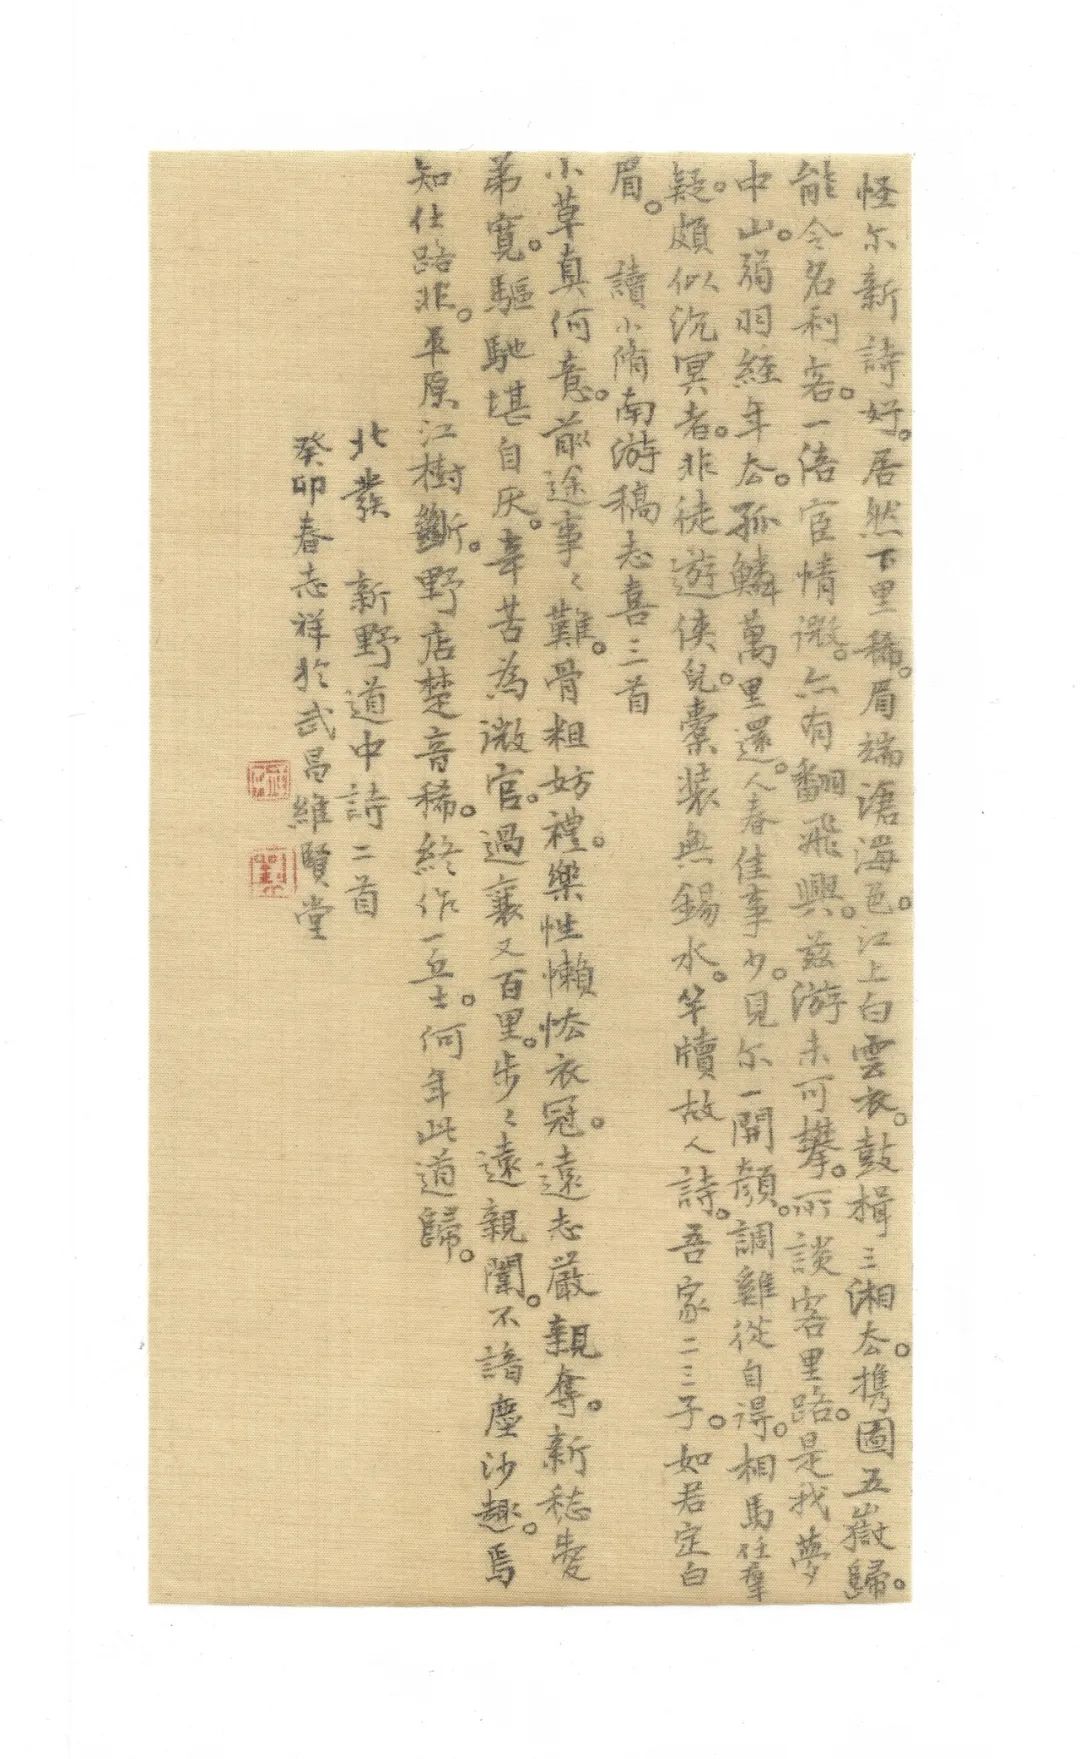 怪尔新詩好。居然下里稀。眉端滄海色。江上白雲衣。鼓楫三湘去。携圖五嶽歸。
能令名利客。一倍宦情微。亦有翻飛興。兹游未可攀。所談客里路。是我夢
中山。弱羽經年去。孤鱗萬里還。人春佳事少。見尔一開顏。調雞從自得。相馬任羣
疑。頗似沉冥者。非徒遊俠兒。囊装無錫水。竿牘故人詩。吾家二三子。如君定白
眉。 讀小脩南游稿志喜三首
小草真何意。前途事〻難。骨粗妨禮樂。性懶怯衣冠。遠志嚴親奪。新愁
弟寬。驅馳堪自厌。辛苦為微官。過襄又百里。步〻遠親闈。不諳塵沙趣。焉
知仕路非。平原江樹斷。野店楚音稀。終作一丘士。何年此道歸。
北發 新野道中詩二首
癸卯春志祥於武昌維賢堂